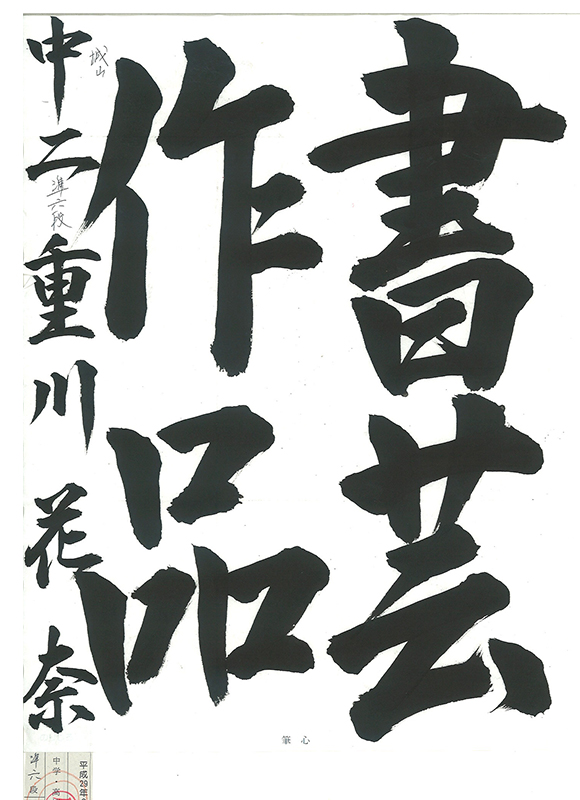 書芸
作品
城山
中二 準六段 重川花奈
心筆
平成29年
中学・高
準六段